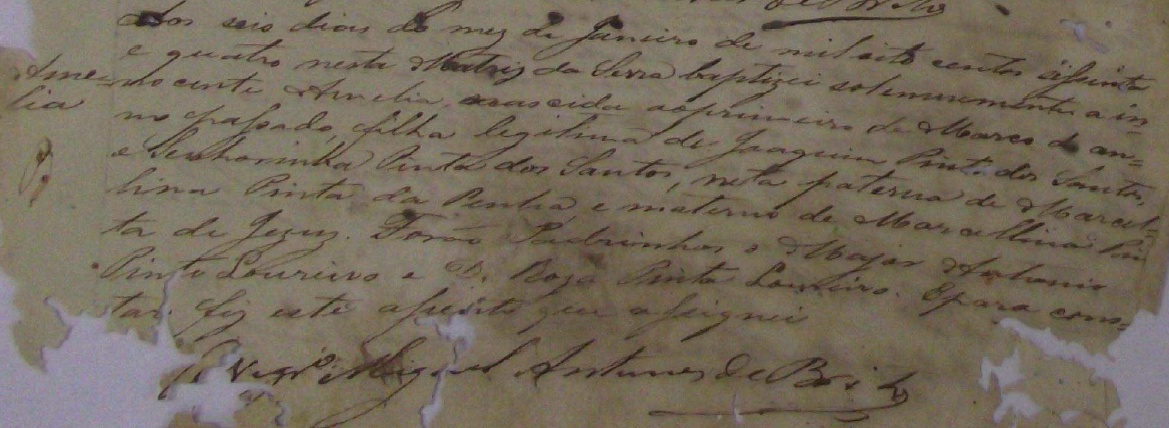 de Brito
Aos seis dias do mez de Janeiro de mil oito centos oitenta
e quatro nesta Matriz da Serra baptizei solemnemente a in-
Ame-
lia
nocente Amelia, nascida a primeiro de Março do an-
no passado, filha legitima de Joaquim Pinto dos Santos,
e Senhorinha Pinta dos Santos, neta paterna de Marcel-
lina Pinta da Penha e materna de Marcellina Pin
ta de Jezuz. Forão Padrinhos o Major Antonio
Pinto Loureiro e D. Roza Pinta Loureiro. E para cons-
tar fiz este assento que assignei
O Vigrº Miguel Antunes de Brito